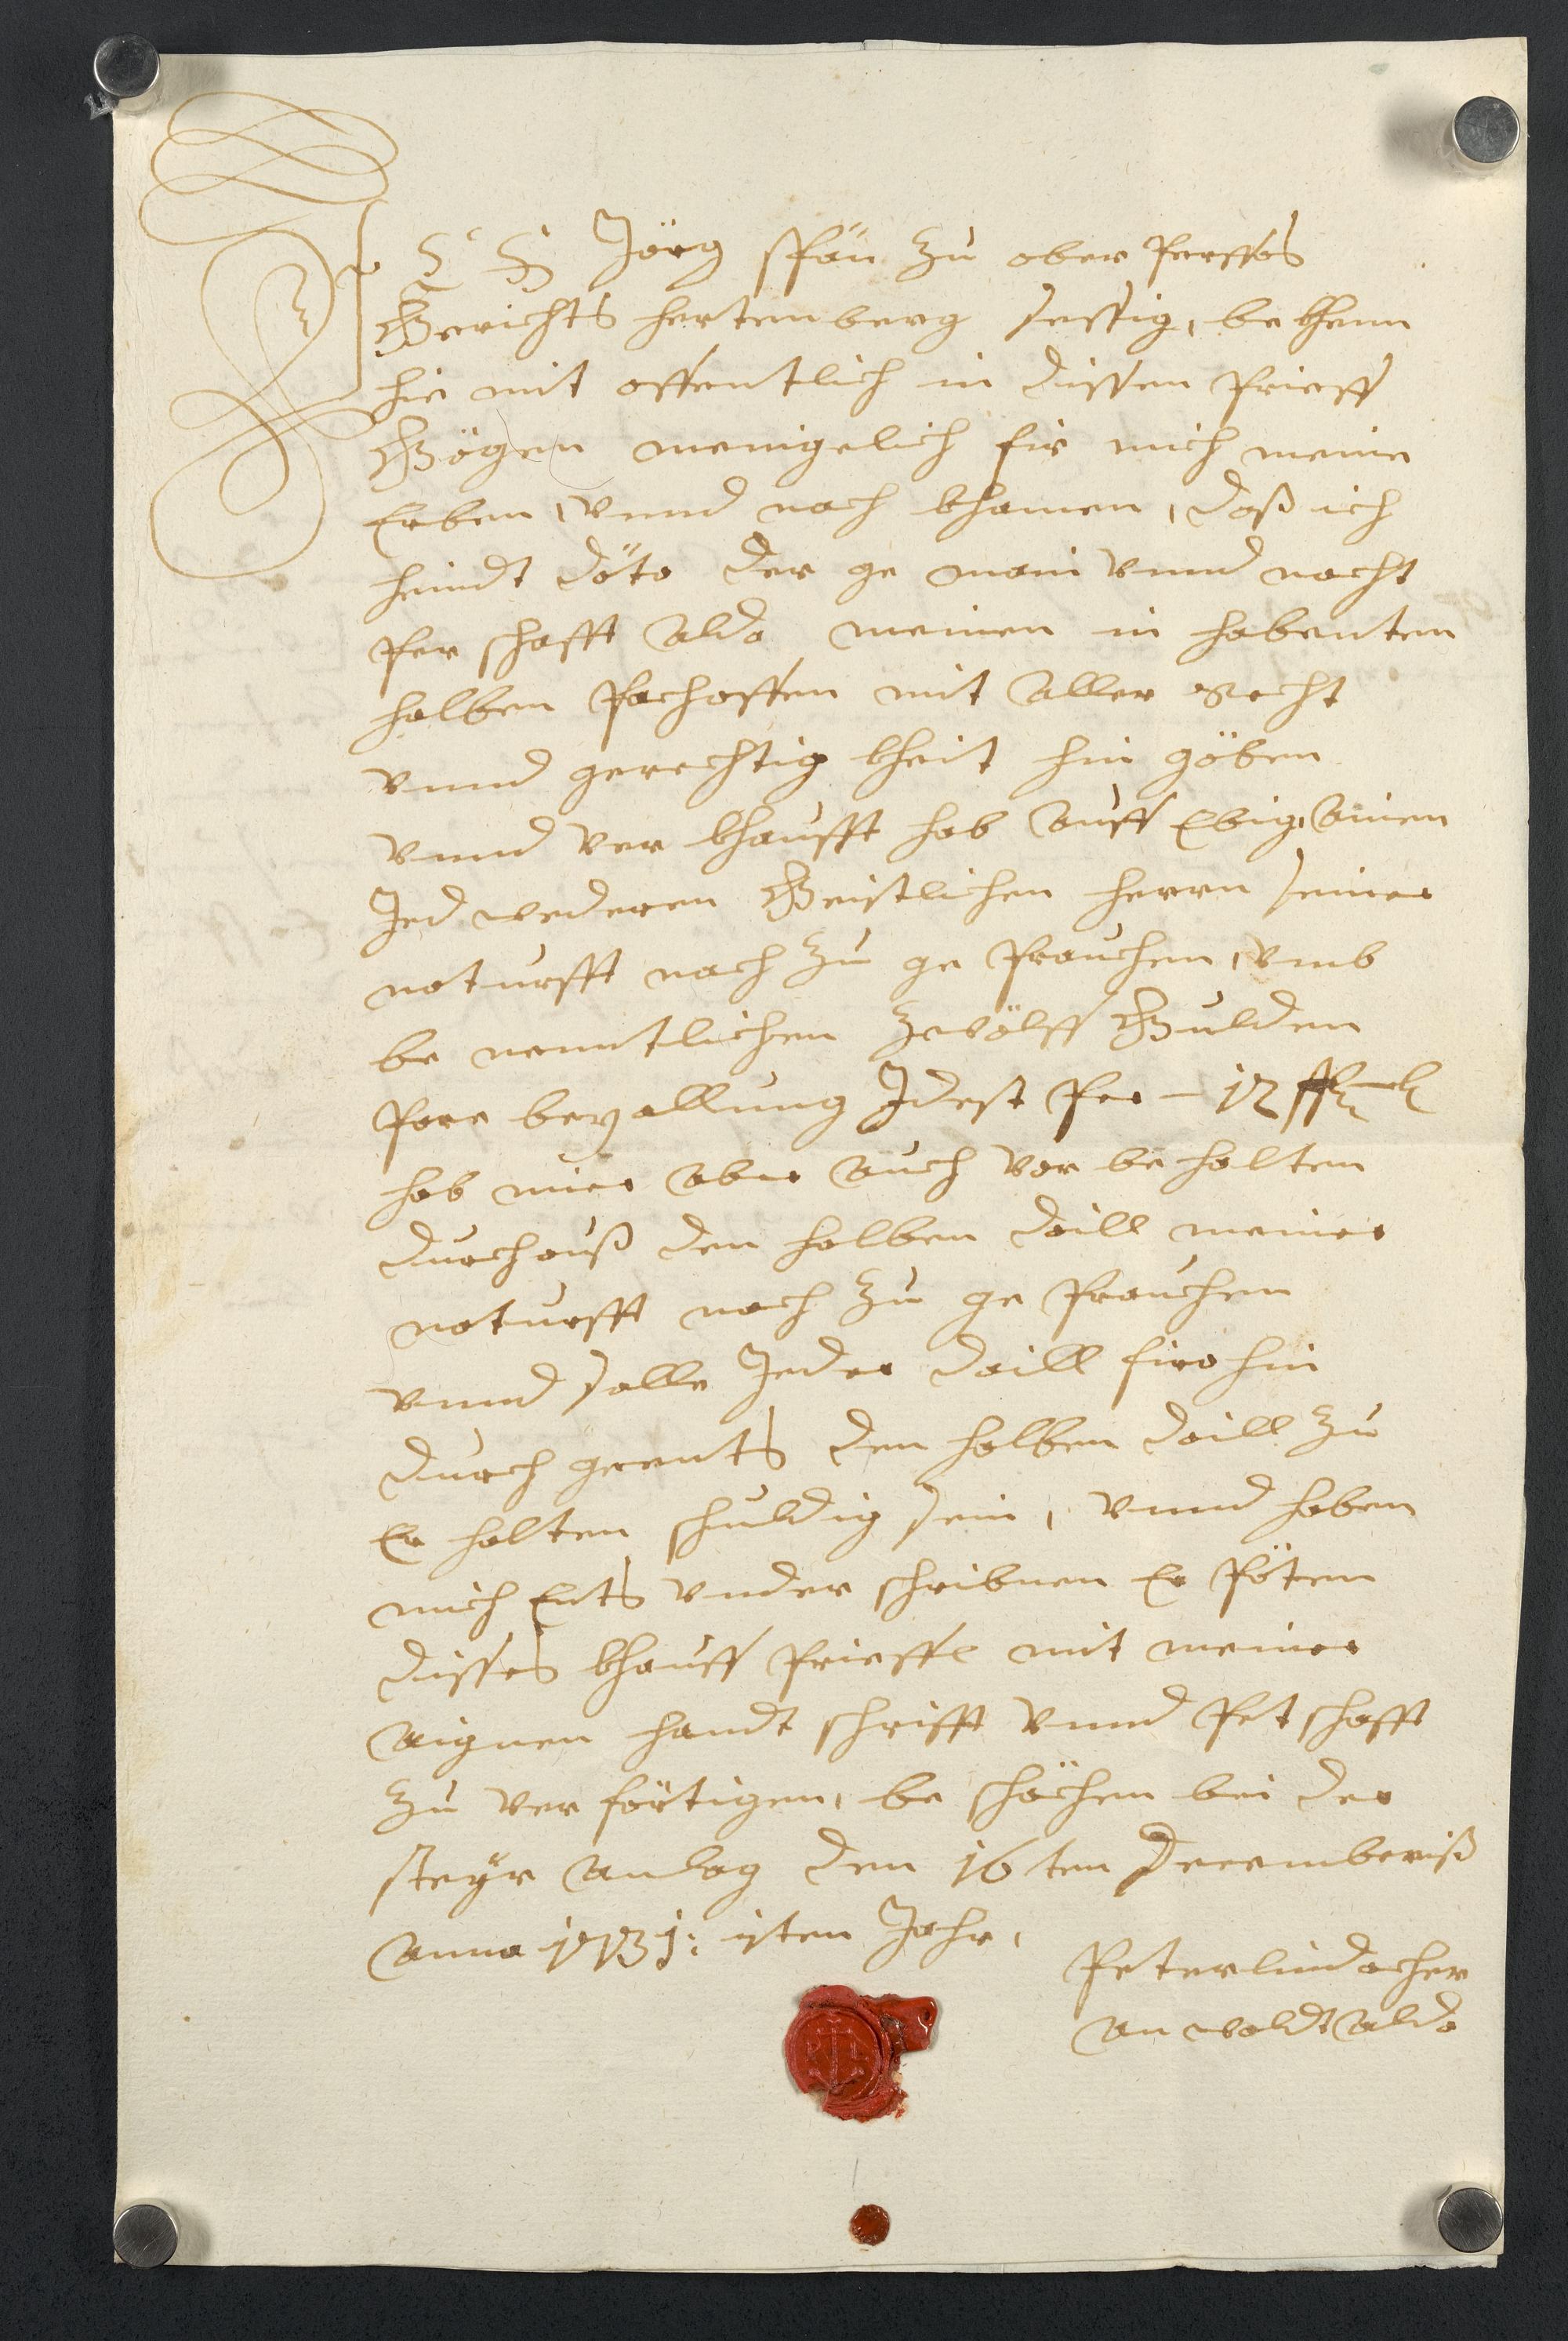 ICH Jörg Spän zu ober Perffes
Gerichts hertenberg sessig, be khenn
hie mit offentlich in dissen Prieff
Gögen menigelich fir mich meine
Erben, vnnd nach khamen, daß ich
heindt däto der ge main vnnd nacht
Per schafft alda meinen in habenten
halben Pachoffen mit aller Recht
vnnd gerechtig kheit hin göben
vnnd ver khaufft hab auff Ebig, ainen
Jed wederen Geistlichen herrn seiner
noturfft nach zu ge Prauchen, vmb
be nenntlichen Zwölff Gulden
Pare bezallung Idest Per – 12 f
hab mier aber auch vor be halten
durchauß den halben daill meiner
noturfft nach zu ge Prauchen
vnnd solle Jeder daill firo hin
durch geents den halben daill zu
Er halten schuldig sein, vnnd haben
mich Ents vnder schribnen Er Päten
disses khauff Prieffl mit meiner
aignen handt schrifft vnnd Pet schafft
zu ver färtigen, be schächen bei der
steyr anlag den 16ten Decemberiß
Anno 1731: isten Jahr,
Peter lindacher
an waldt alda
P L